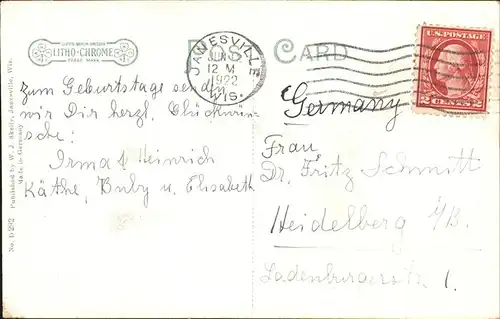 LITHO-CHROME
TRADE MARK
POST CARD
JANESVILLE
JUN
12 M
1922
WIS.
U.S. POSTAGE
2 CENTS 2
Zum Geburtstage senden
wir Dir herzl. Glückwün-
sche!
Irma & Heinrich
Käthe, Buby u. Elisabeth
Germany
Frau
Dr. Fritz Schmitt
Heidelberg i/B.
Ladenburgerstr. 1.
No. D 292 Published by W. J. Skelly, Janesville, Wis.
Made in Germany